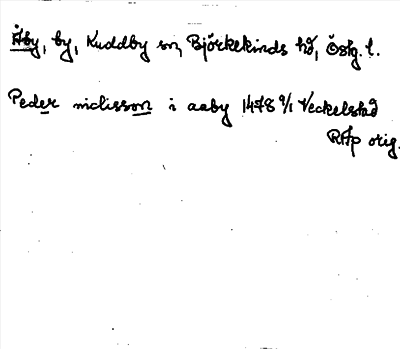 Åby, by, Kuddby sn, Björkekinds hd, Östg. l.
Peder niclisson i aaby 1478 9/1 Veckelstad
RAp orig.